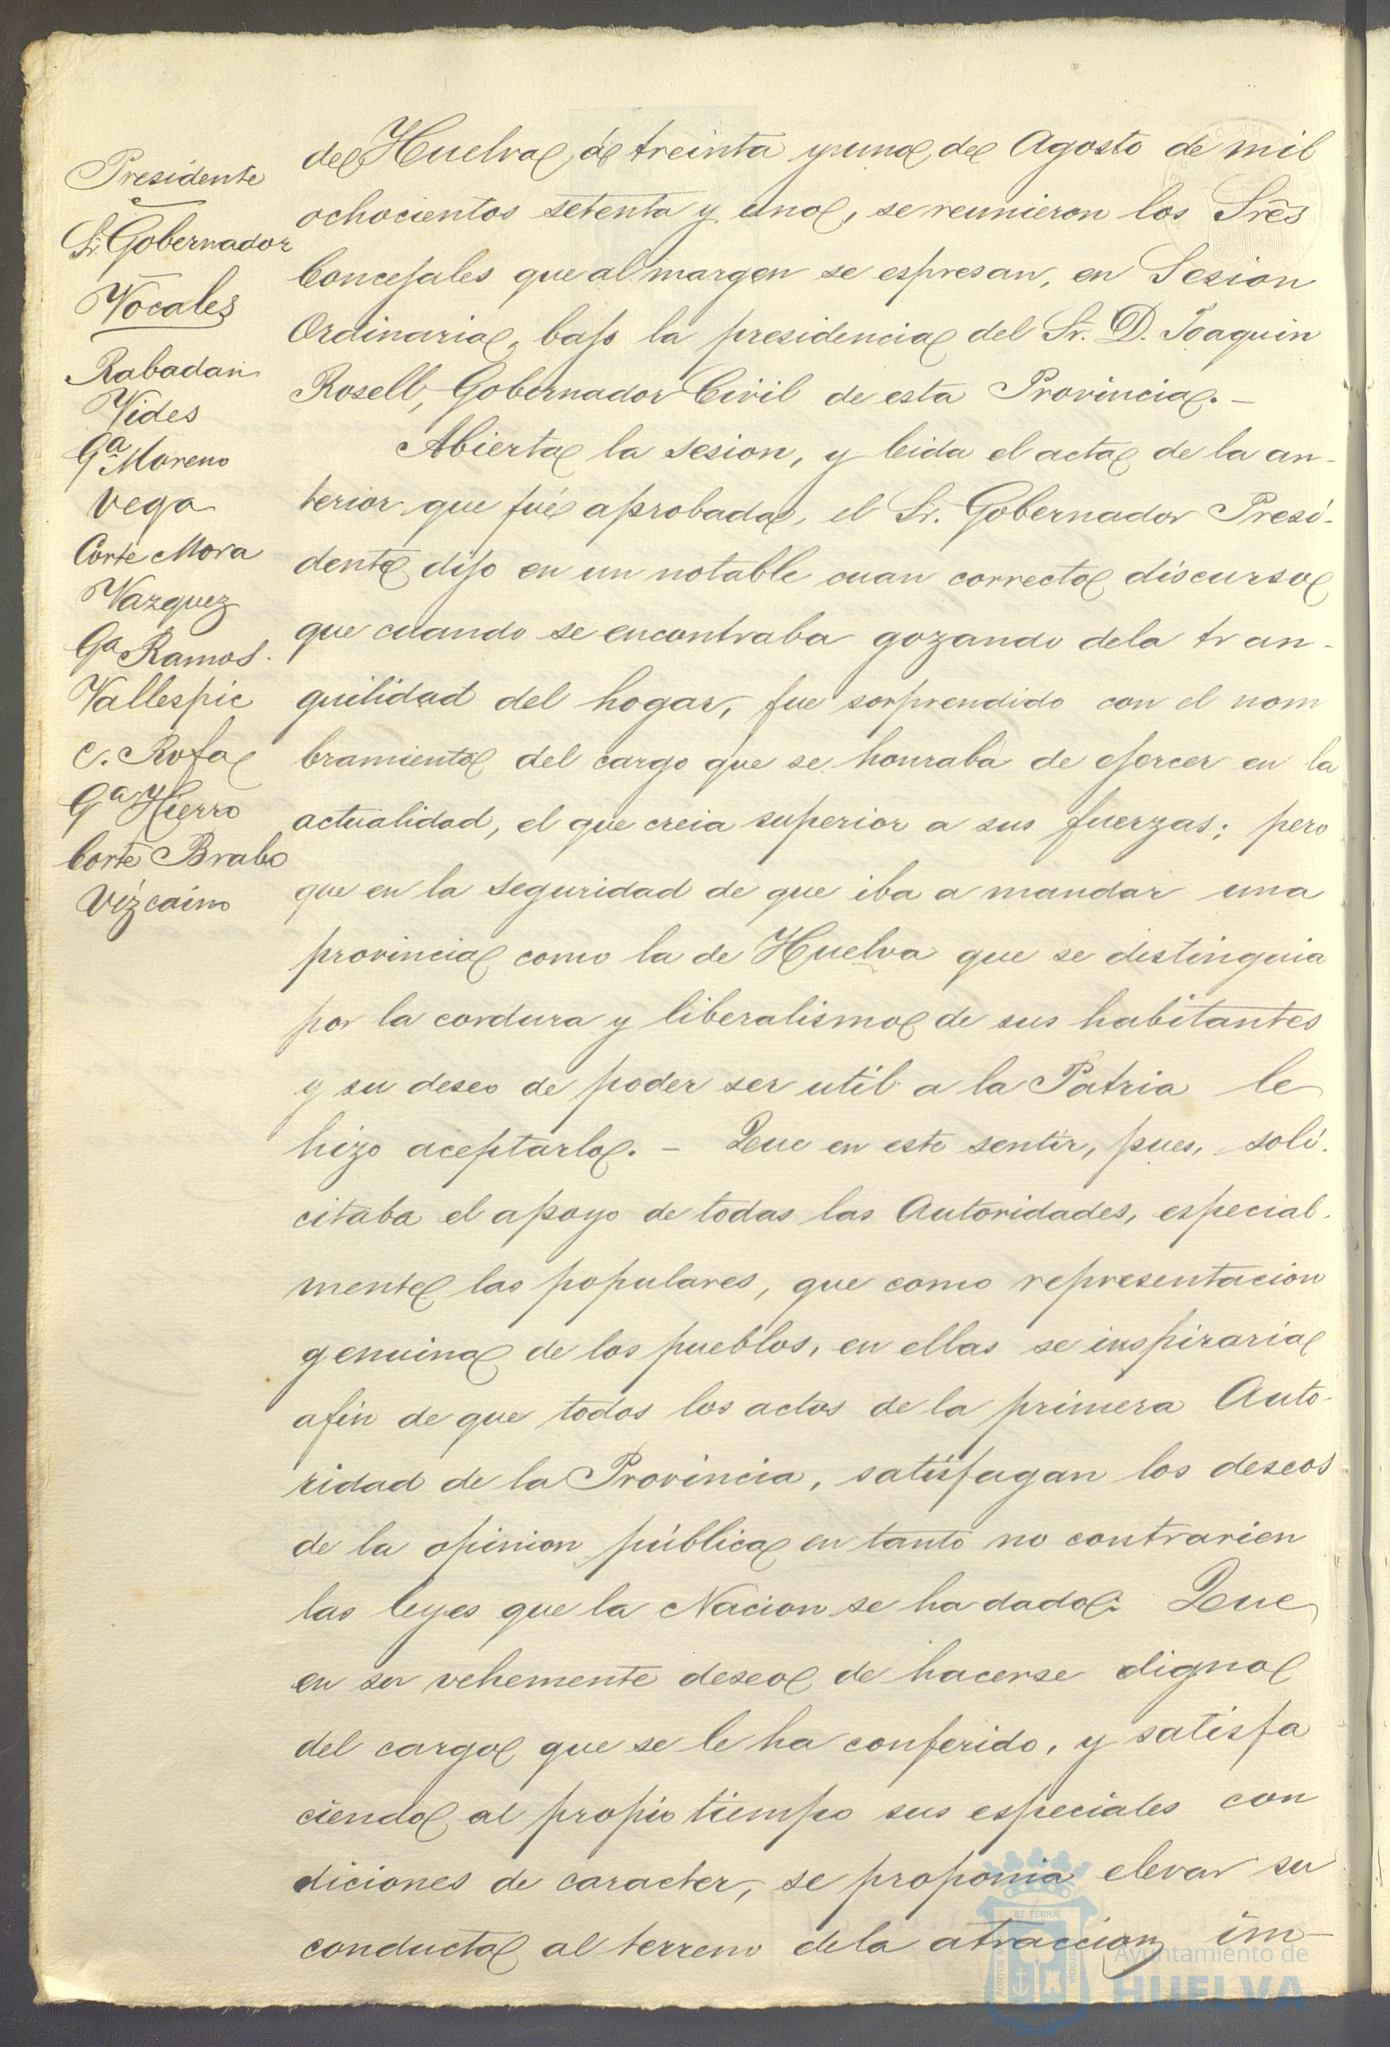 Presidente
Sr. Gobernador
Vocales
Rabadan
Vides
Gª Moreno
Vega
Corte Mora
Vazquez
Gª Ramos.
Vallespic
C. Rofa
Gª y Hierro
Corte Brabo
Vizcaino
de Huelva, á treinta y uno de Agosto de mil
ochocientos setenta y uno, se reunieron los Sres
Concejales que al margen se espresan, en Sesion
Ordinaria, bajo la presidencia del Sr. D. Joaquin
Rosell, Gobernador Civil de esta Provincia. —
Abierta la sesion, y leida el acta de la an-
terior que fué aprobada, el Sr. Gobernador Presi-
dente dijo en un notable cuan correcto discurso
que cuando se encontraba gozando dela tran-
quilidad del hogar, fue sorprendido con el nom
bramiento del cargo que se honraba de ejercer en la
actualidad, el que creia superior a sus fuerzas; pero
que en la seguridad de que iba a mandar una
provincia como la de Huelva que se distinguia
por la cordura y liberalismo de sus habitantes
y su deseo de poder ser util a la Patria le
hizo aceptarlo. — Que en este sentir, pues, soli-
citaba el apoyo de todas las Autoridades, especial-
mente las populares, que como representacion
genuina de los pueblos, en ellas se inspiraria
afin de que todos los actos de la primera Auto-
ridad de la Provincia, satisfagan los deseos
de la opinion pública en tanto no contrarien
las leyes que la Nacion se ha dado: Que
en su vehemente deseo de hacerse digno
del cargo que se le ha conferido, y satisfa
ciendo al propio tiempo sus especiales con
diciones de caracter, se proponia elevar su
conducta al terreno dela atraccion, im-
Ayuntamiento de
HUELVA